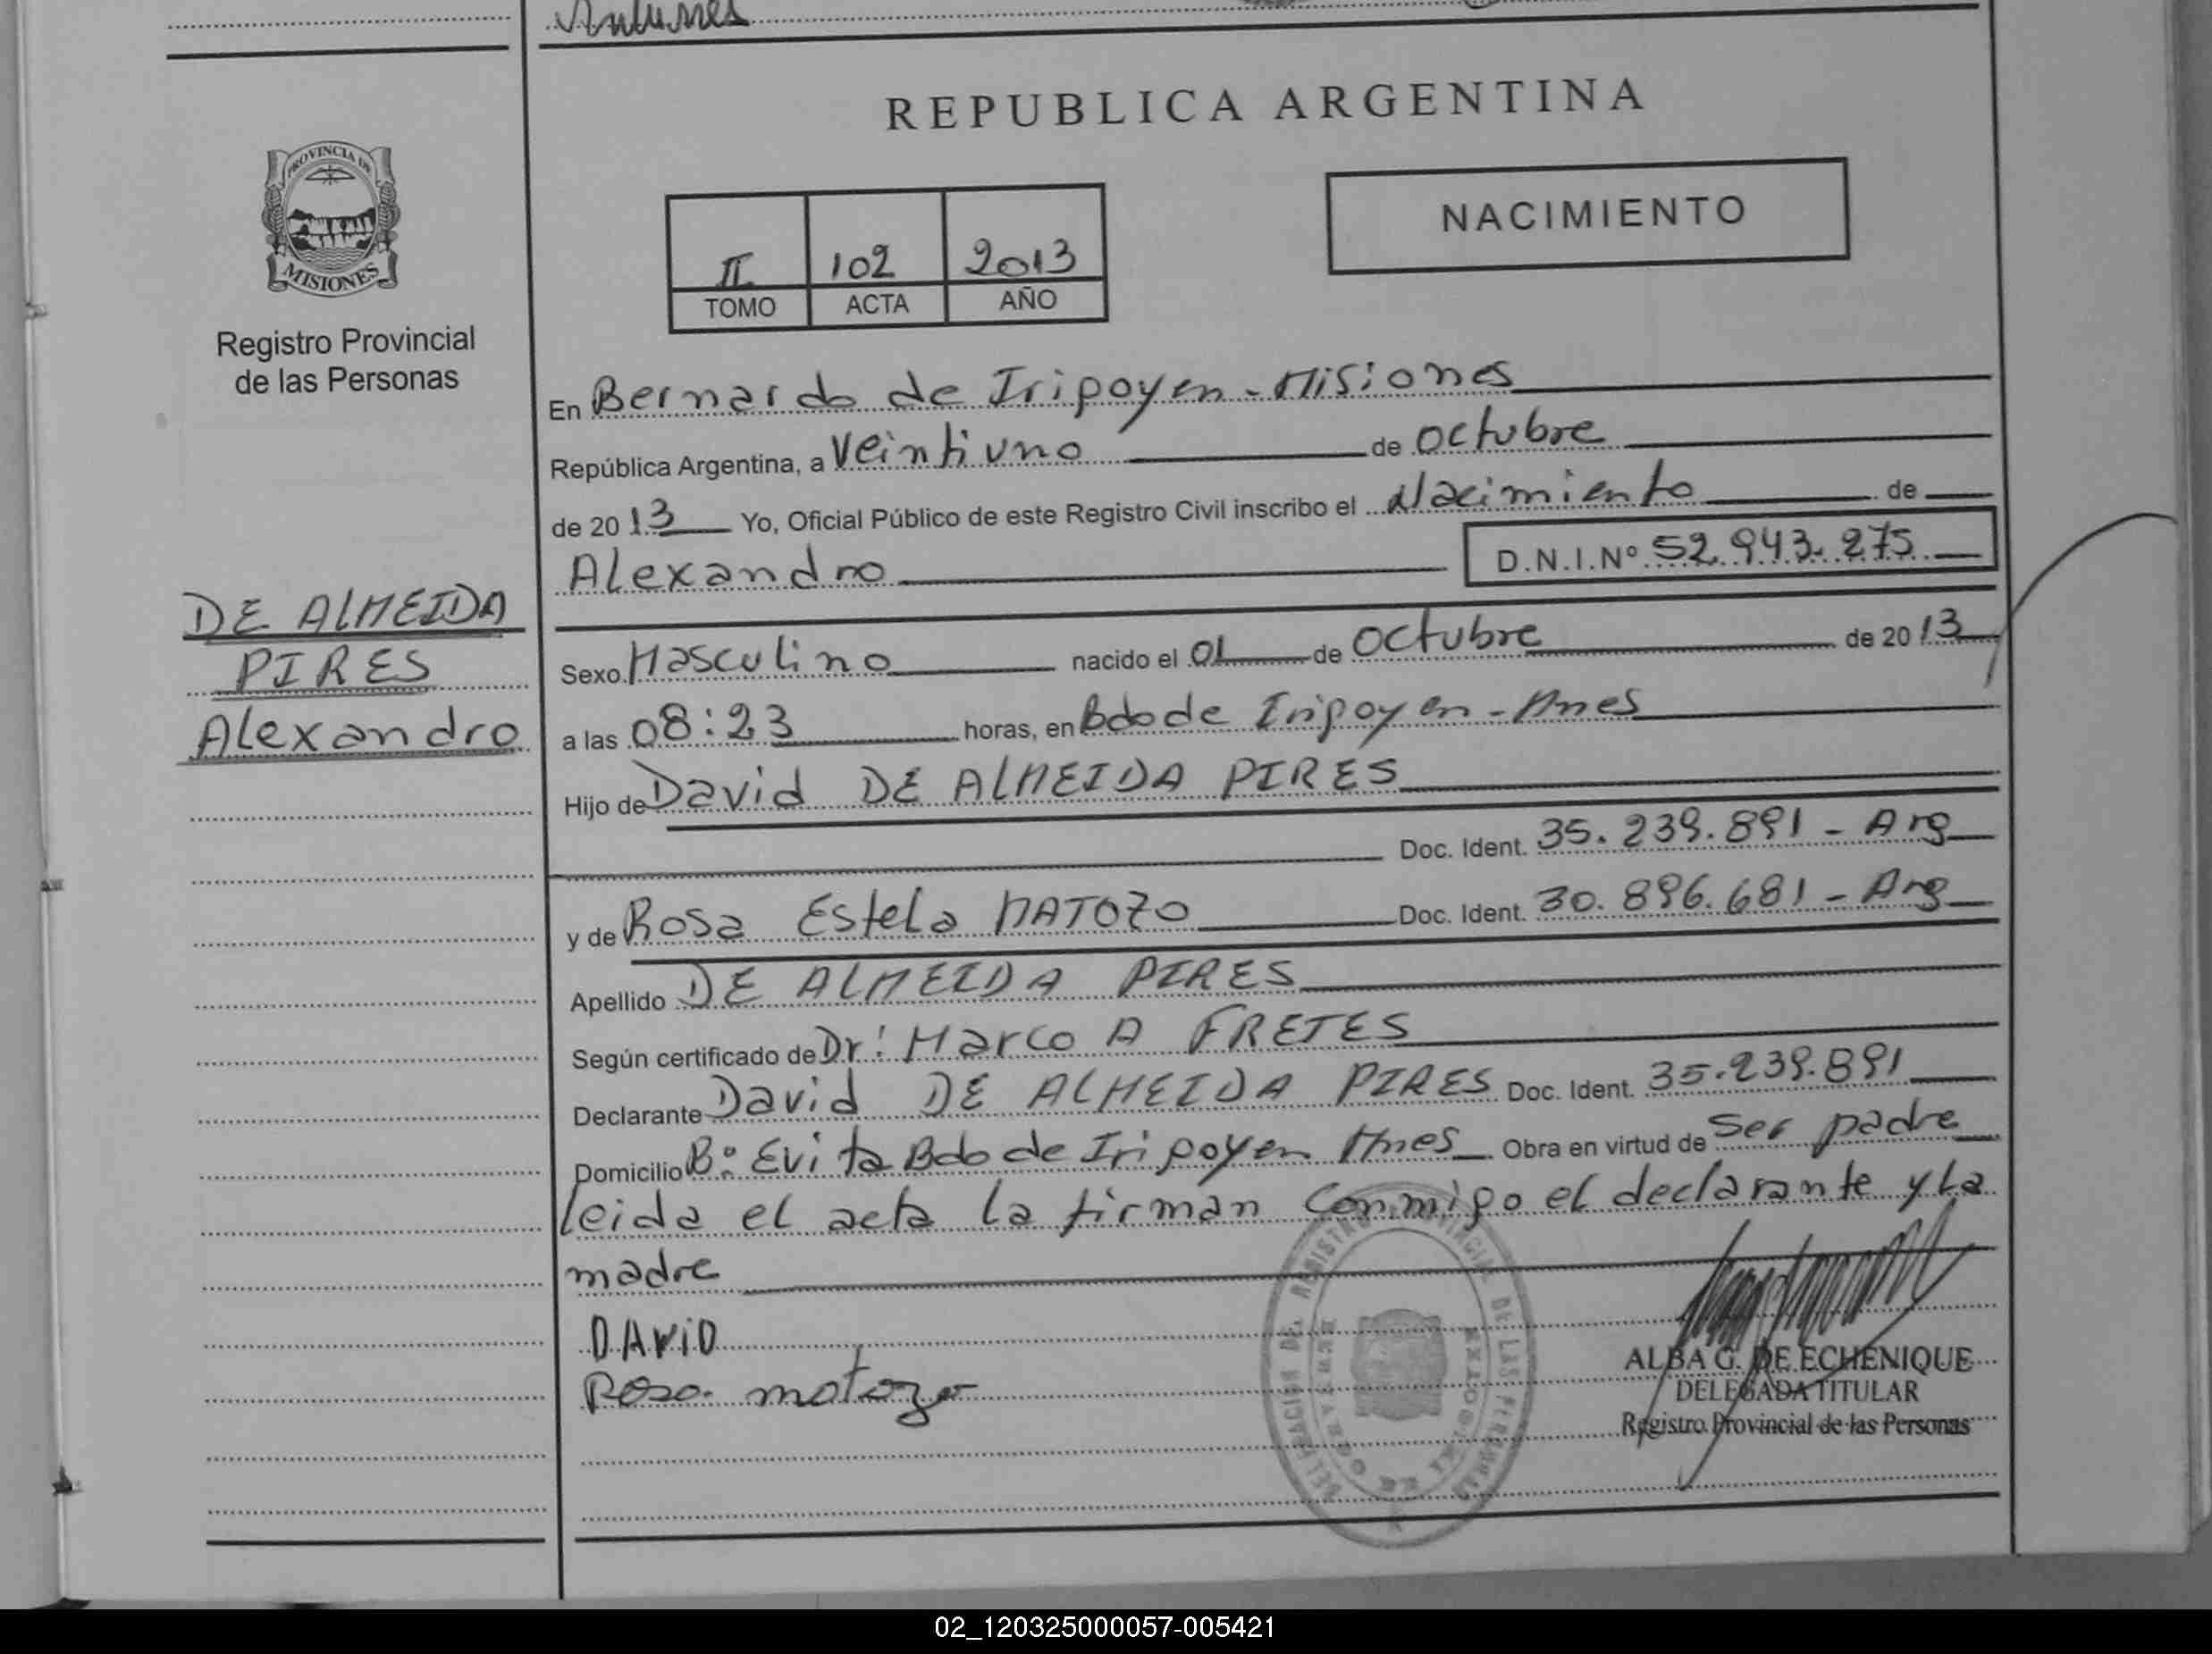 Antunes
REPUBLICA ARGENTINA
PROVINCIA DE
MISIONES
Registro Provincial
de las Personas
NACIMIENTO
II 102 2013
TOMO ACTA AÑO
En Bernardo de Iripoyen - Misiones
República Argentina, a Veintiuno de Octubre
de 20 13 Yo, Oficial Público de este Registro Civil inscribo el Nacimiento de
Alexandro D.N.I.Nº 52.943.275
DE ALMEIDA
PIRES
Alexandro
Sexo Masculino nacido el 01 de Octubre de 20 13
a las 08:23 horas, en Bdo de Iripoyen - Mnes
Hijo de David DE ALMEIDA PIRES
Doc. Ident. 35.239.891 - Arg
y de Rosa Estela MATOZO Doc. Ident. 30.896.681 - Arg
Apellido DE ALMEIDA PIRES
Según certificado de Dr: Marco A FRETES
Declarante David DE ALMEIDA PIRES Doc. Ident. 35.239.891
Domicilio Bº Evita Bdo de Iripoyen Mnes Obra en virtud de Ser padre
leida el acta la firman Conmigo el declarante y La
madre
DAViD
Rosa matozo
ALBA G. DE ECHENIQUE
DELEGADA TITULAR
Registro Provincial de las Personas
02_120325000057-005421